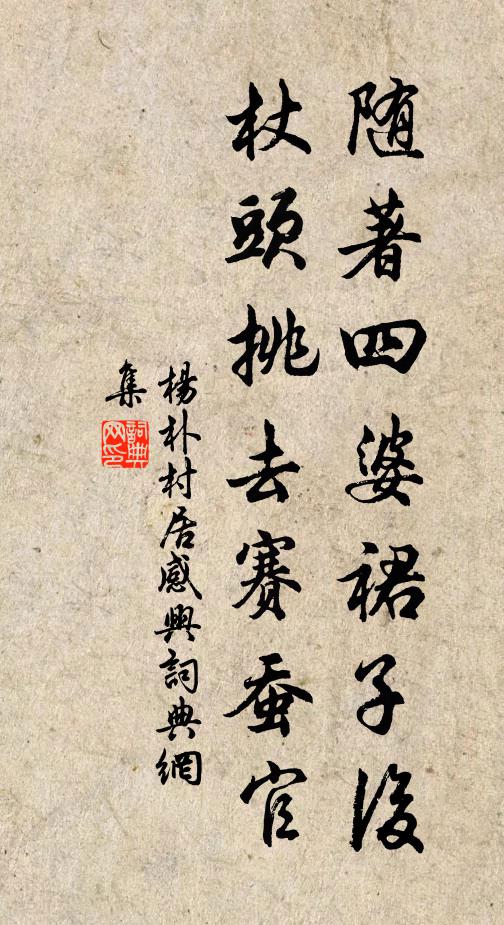 随著四婆裙子後
杖頭挑去賽蚕官
楊朴村居感興詞典網
集
詞典
网印